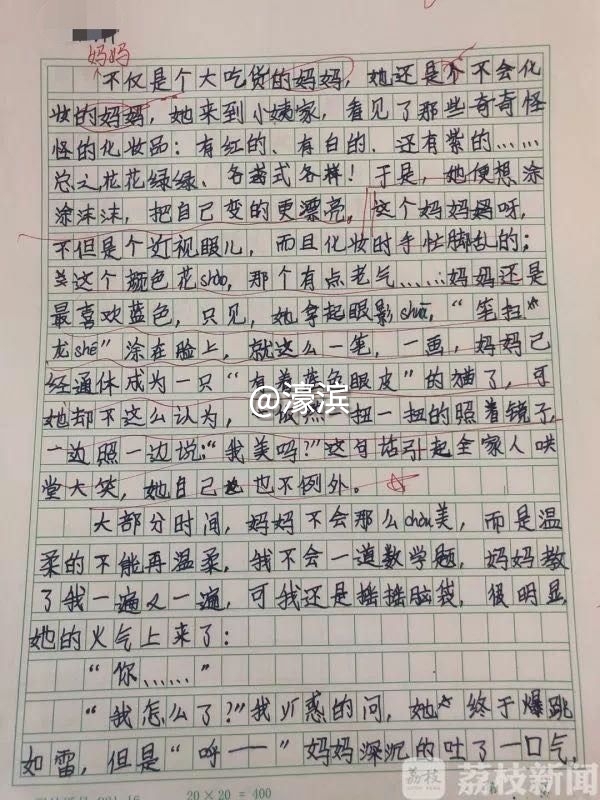 妈妈
不仅是个大吃货的妈妈，她还是个不会化
妆的妈妈，她来到小姨家，看见了那些奇奇怪
怪的化妆品：有红的、有白的、还有紫的……
总之花花绿绿、各式各样！于是，她便想涂
涂沫沫，把自己变的更漂亮，这个妈妈呀，
不但是个近视眼儿，而且化妆时手忙脚乱的；
这个颜色花shào，那个有点老气……妈妈还是
最喜欢蓝色，只见，她拿起眼影shuā，“笔扫
龙shé”涂在脸上，就这么一笔，一画，妈妈已
经通体成为一只“有着蓝色眼皮”的猫了，可
她却不这么认为，依然一扭一扭的照着镜子，
一边照一边说：“我美吗？”这句话引起全家人哄
堂大笑，她自己也不例外。
大部分时间，妈妈不会那么chòu美，而是温
柔的不能再温柔，我不会一道数学题，妈妈教
了我一遍又一遍，可我还是摇摇脑袋，很明显，
她的火气上来了：
“你……”
“我怎么了？”我疑惑的问，她终于爆跳
如雷，但是“呼——”妈妈深沉的吐了一口气，
@濠滨
20×20=400
荔枝
荔枝新闻